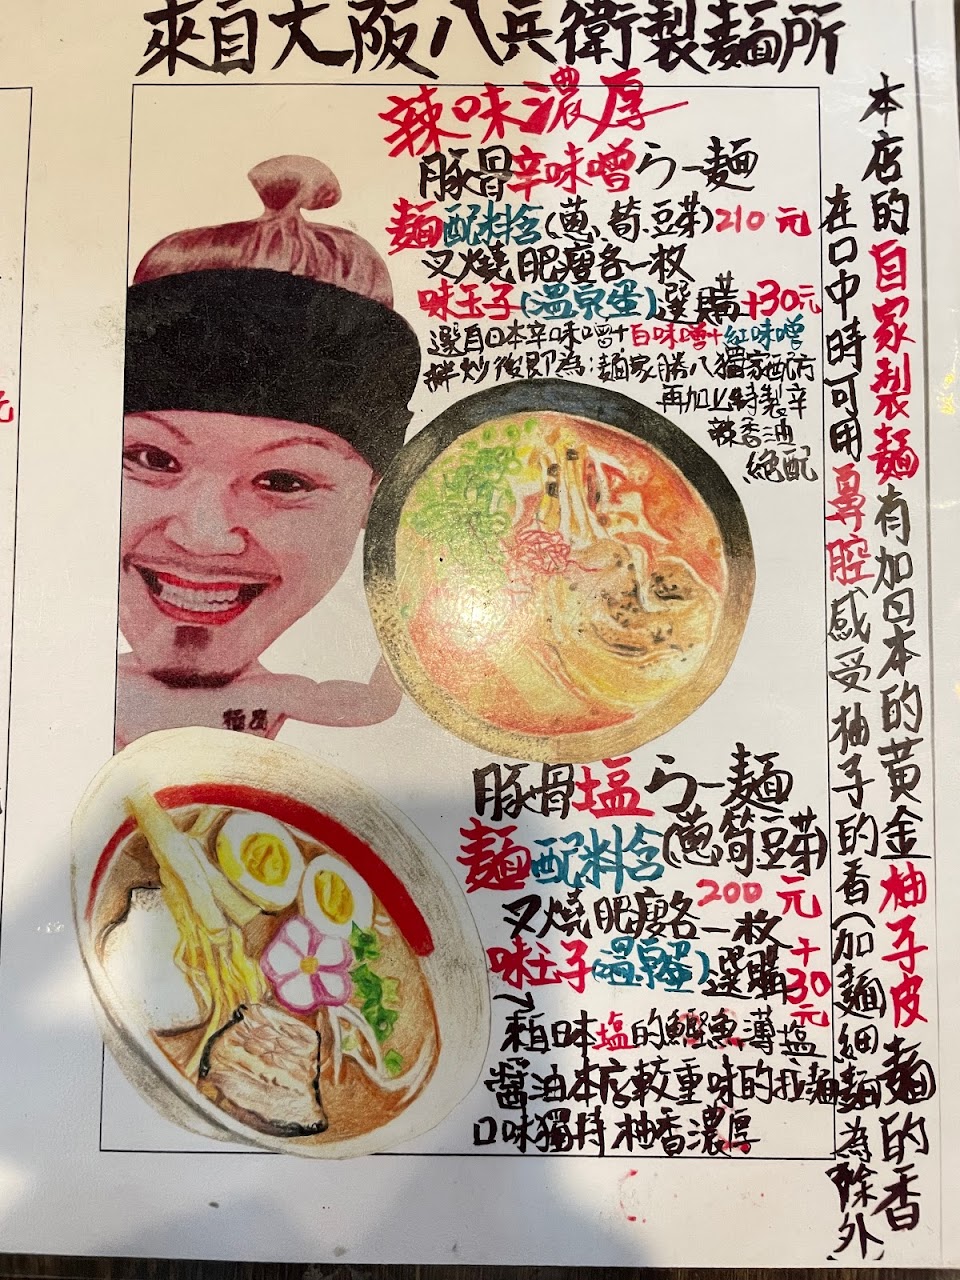 來自大阪八兵衛製麵所
辣味濃厚
豚骨辛味噌らー麵
麵配料含(蔥、筍、豆芽)210元
叉燒肥瘦各一枚
味玉子(溫泉蛋)選購+30元
選自日本辛味噌+白味噌+紅味噌
拌炒後即為:麵家勝八獨家配方
再加上特製辛
辣香油
絕配
極度
豚骨塩らー麵
麵配料含(蔥筍豆芽)
200元
叉燒肥瘦各一枚
味玉子(溫泉蛋)選購+30元
來自日本塩的鰹魚薄塩
醬油本店較重味的拉麵
口味獨特 柚香濃厚
本店的自家製麵有加日本的黃金柚子皮麵的香
在口中時可用鼻腔感受柚子的香(加麵細麵為除外)
元